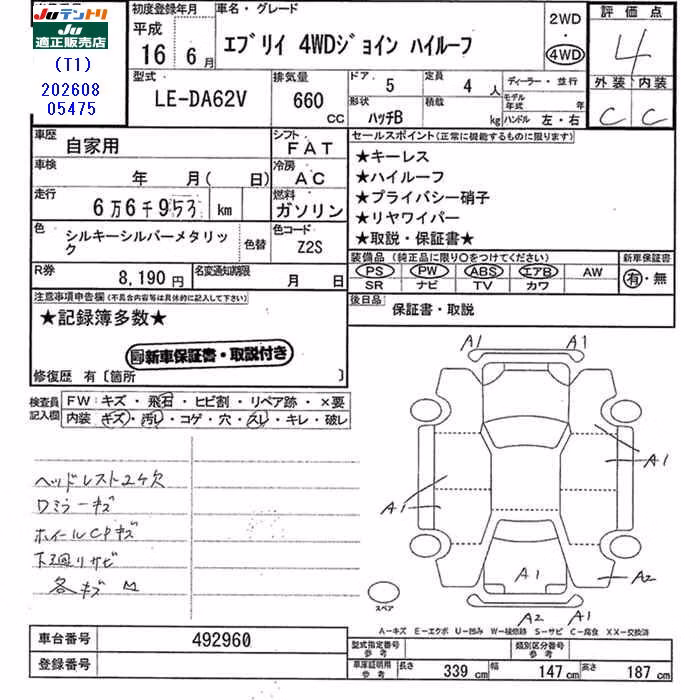 JUテントリ
JU
適正販売店
(T1)
202608
05475
初度登録年月
平成
16 6月
車名・グレード
エブリイ 4WDジョイン ハイルーフ
2WD
・
4WD
評価点
4
外装 内装
C C
型式
LE-DA62V
排気量
660
CC
ドア
5
定員
4人
形状
ハッチB
積載
kg
ディーラー・並行
モデル年式 年
ハンドル 左・右
車歴
自家用
シフト
FAT
車検
年 月( 日)
冷房
AC
走行
6万6千953km
燃料
ガソリン
色
シルキーシルバーメタリック
色替
色コード
Z2S
R券
8,190円
名変通知期限
月 日
セールスポイント(正常に機能するものに限ります)
★キーレス
★ハイルーフ
★プライバシー硝子
★リヤワイパー
★取説・保証書★
装備品(純正品に限り○をつけてください)
PS PW ABS エアB AW
SR ナビ TV カワ
新車保証書
有・無
後日品
保証書・取説
注意事項申告欄(不具合内容等は具体的に記入して下さい)
★記録簿多数★
新車保証書・取説付き
修復歴 有〔箇所 〕
検査員記入欄
FW:キズ・飛石・ヒビ割・リペア跡・×要
内装 キズ・汚レ・コゲ・穴・スレ・キレ・破レ
ヘッドレスト2ケ欠
ワミラーキズ
ホイールCPキズ
下廻リサビ
各キズ
A1 A1
A1
A1
A1
A2
A2 A1
スペア
A-キズ E-エクボ U-凹み W-補修跡 S-サビ C-腐食 XX-交換済
車台番号
492960
登録番号
型式指定番号
参考
類別区分番号
参考
車庫証明用
参考
長さ 339cm 幅 147cm 高さ 187cm